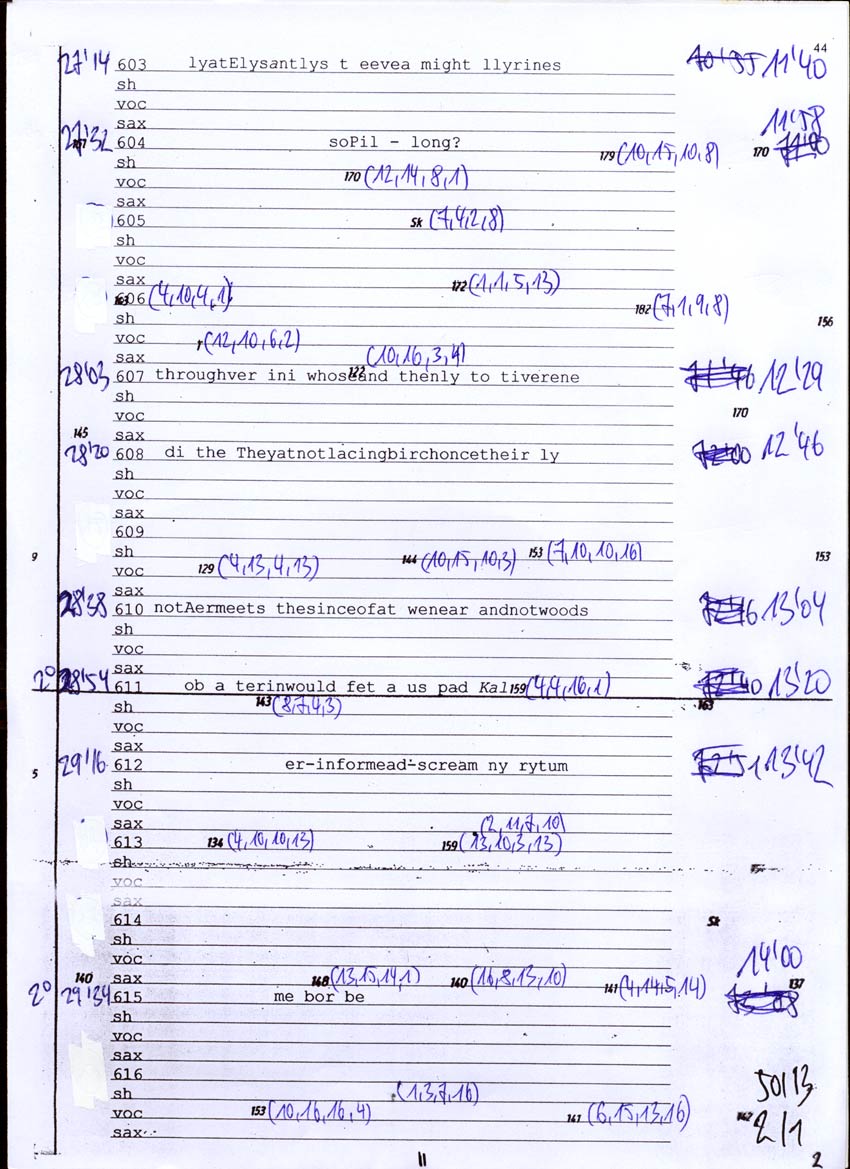 44
27'14 603 lyatElysantlys t eevea might llyrines 11'40
sh
voc
sax 11'58
27'32 604 soPil - long? 170
sh 179 (10,15,10,8)
voc 170 (12,14,8,1)
sax
605 Sk (7,4,2,8)
sh
voc
sax 172 (1,1,5,13)
606 (4,10,4,1) 182 (7,1,9,8)
sh 156
voc r(12,10,6,2)
sax (10,16,3,4)
28'03 607 throughver ini whoseand thenly to tiverene 12'29
sh
voc 170
145 sax
28'20 608 di the Theyatnotlacingbirchoncetheir ly 12'46
sh
voc
sax
609
9 sh 153 (7,10,10,16) 153
voc 129 (4,13,4,13) 144 (10,15,10,3)
sax
28'38 610 notAermeets thesinceofat wenear andnotwoods 13'04
sh
voc
sax
2° 28'54 611 ob a terinwould fet a us pad Kal 159 (4,4,16,1) 13'20
sh 143 (8,7,4,3) 163
voc
sax
5 29'16 612 er-informead-scream ny rytum 13'42
sh
voc
sax (2,11,7,10)
613 134 (4,10,10,13) 159 (13,10,3,13)
sh
voc
sax
614 Sk
sh
voc 14'00
140 sax 148 (13,15,14,1) 140 (16,8,13,10) 141 (4,14,5,14) 137
2° 29'34 615 me bor be
sh
voc
sax
616
sh (1,3,7,16) 50/13
voc 153 (10,16,16,4) 141 (6,15,13,16) 142 2/1
sax
11 2